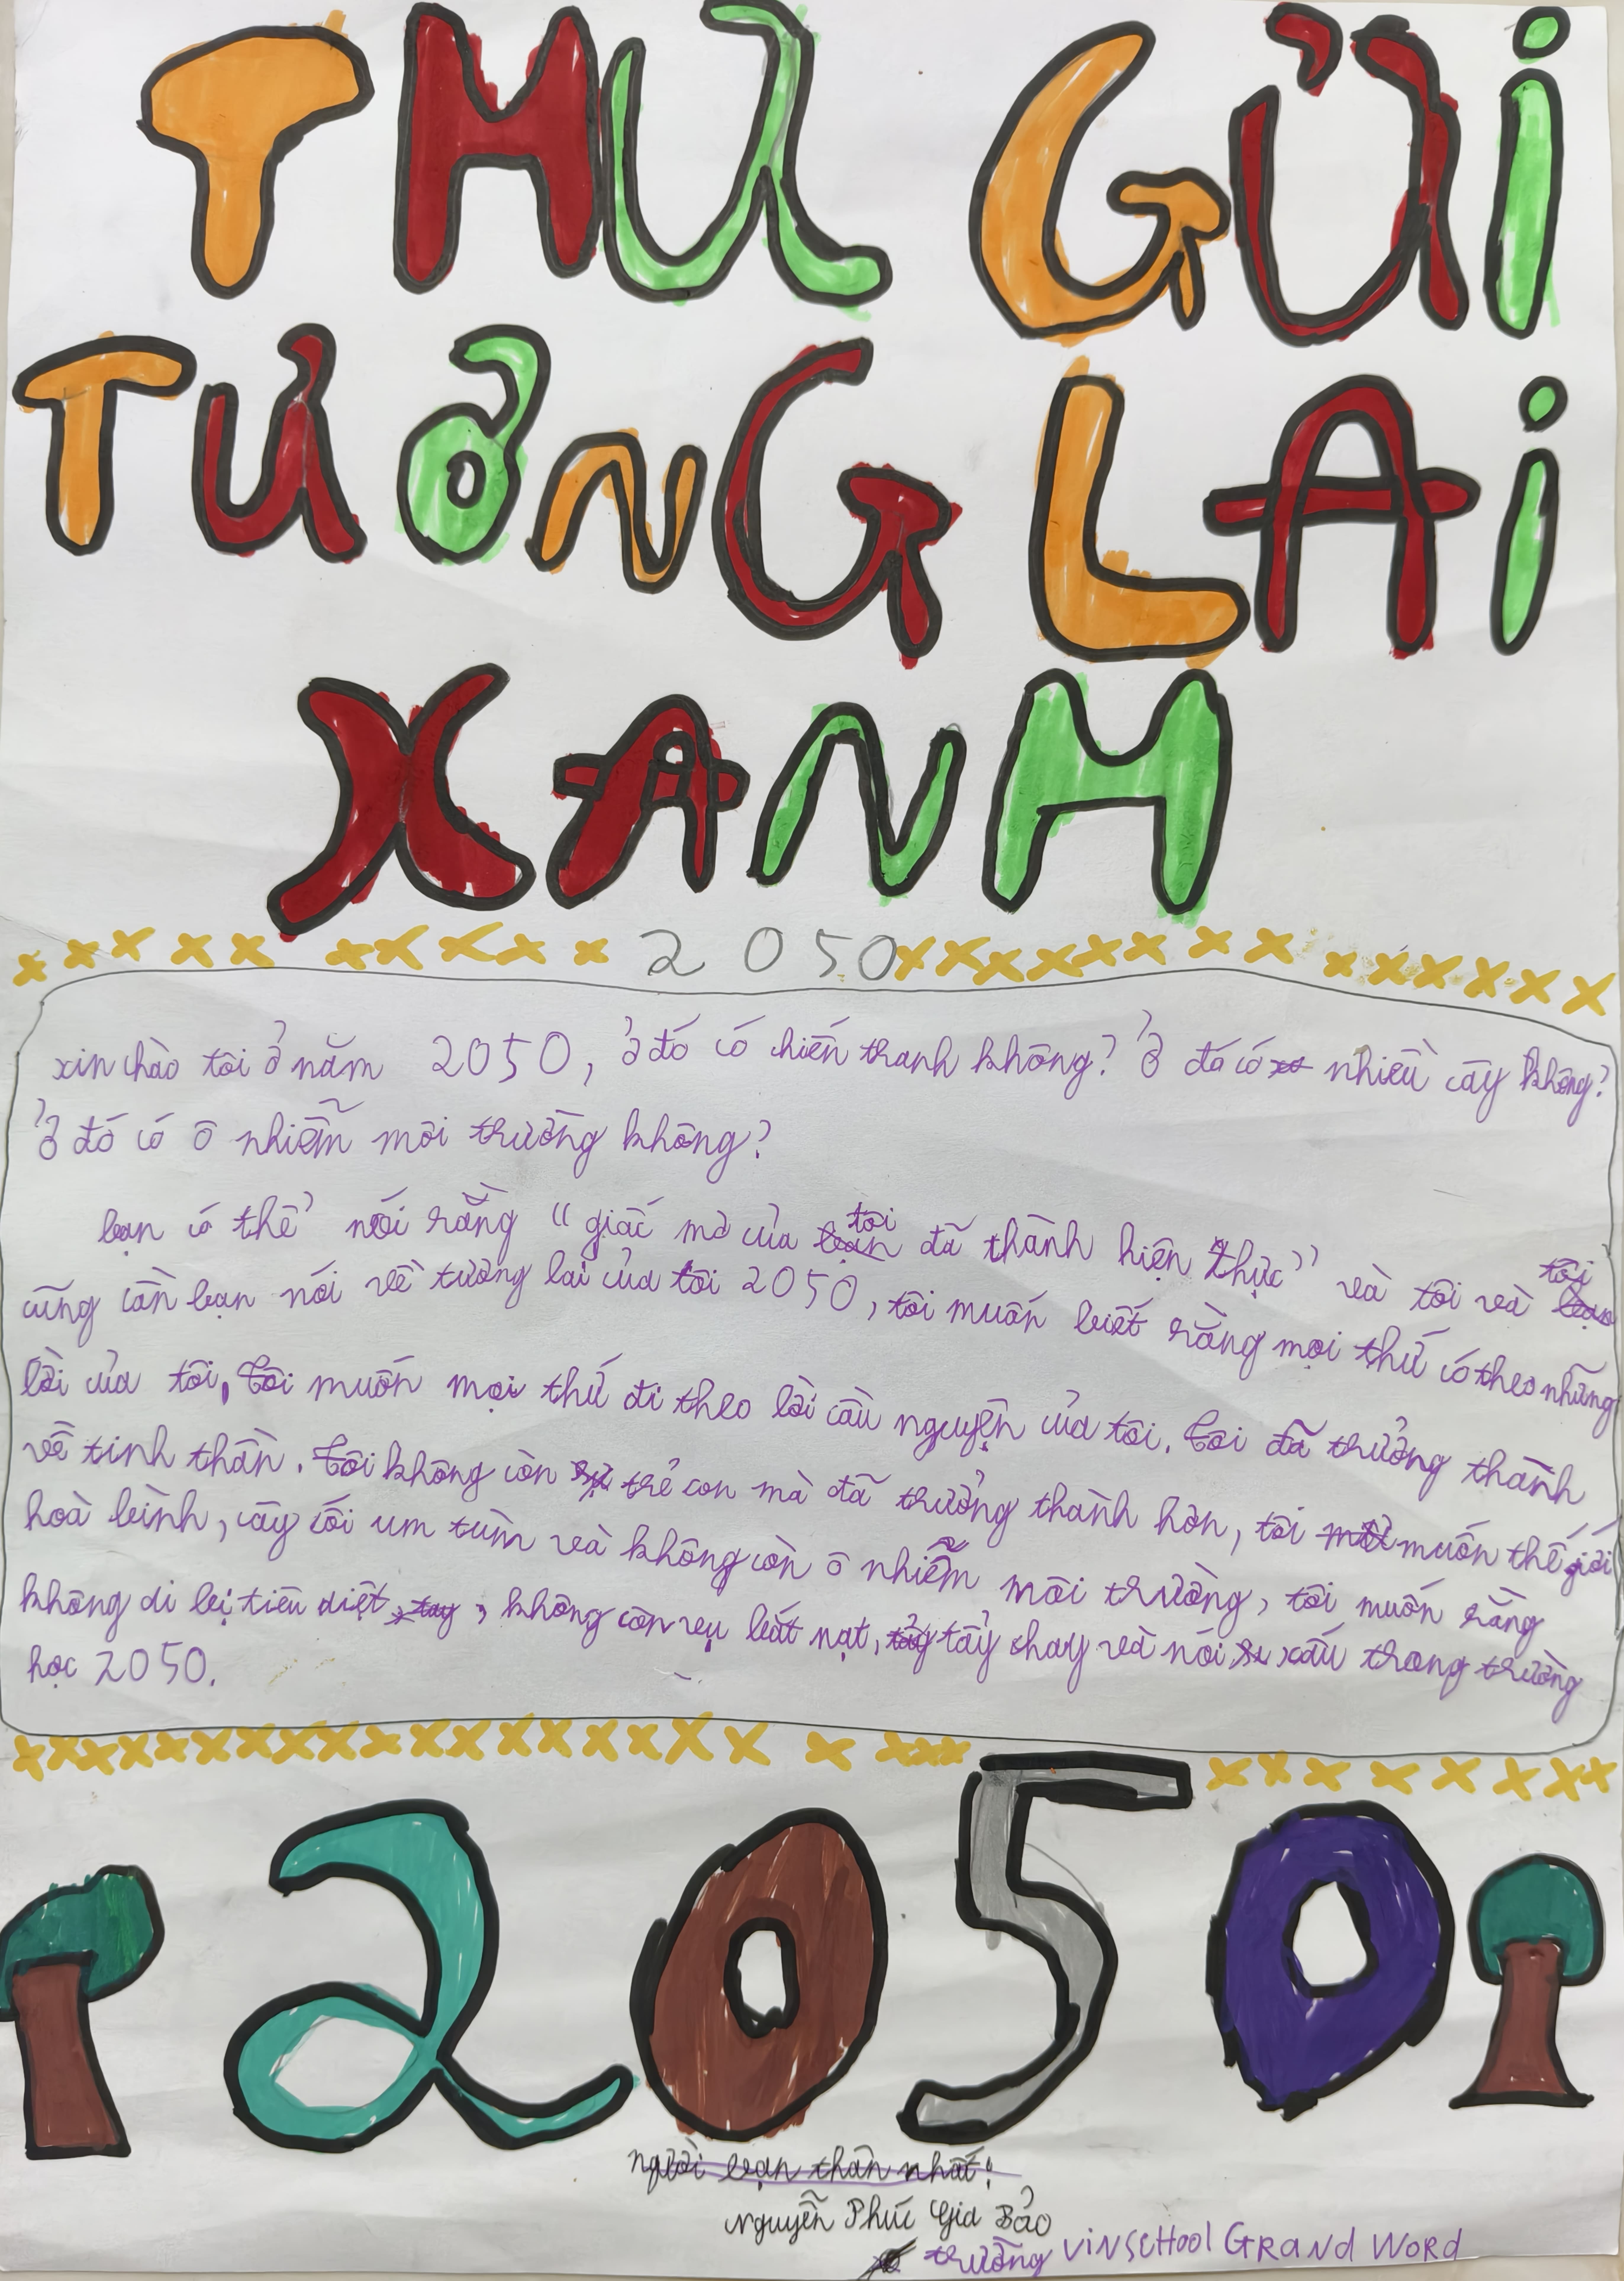 THƯ GỬI
TƯƠNG LAI
XANH
2050
xin chào tôi ở năm 2050, ở đó có chiến tranh không? Ở đó có nhiều cây không?
Ở đó có ô nhiễm môi trường không?
bạn có thể nói rằng "giấc mơ của tôi đã thành hiện thực" và tôi và tôi
cũng cần bạn nói về tương lai của tôi 2050, tôi muốn biết rằng mọi thứ có theo những
lời của tôi, Tôi muốn mọi thứ đi theo lời cầu nguyện của tôi. Tôi đã trưởng thành
về tinh thần. Tôi không còn trẻ con mà đã trưởng thành hơn, tôi muốn thế giới
hoà bình, cây cối um tùm và không còn ô nhiễm môi trường, tôi muốn rằng
không di bị tiêu diệt, không còn vụ bắt nạt, tẩy chay và nói xấu trong trường
học 2050.
2050
người bạn thân nhất:
Nguyễn Phúc Gia Bảo
trường VINSCHOOL GRAND WORD